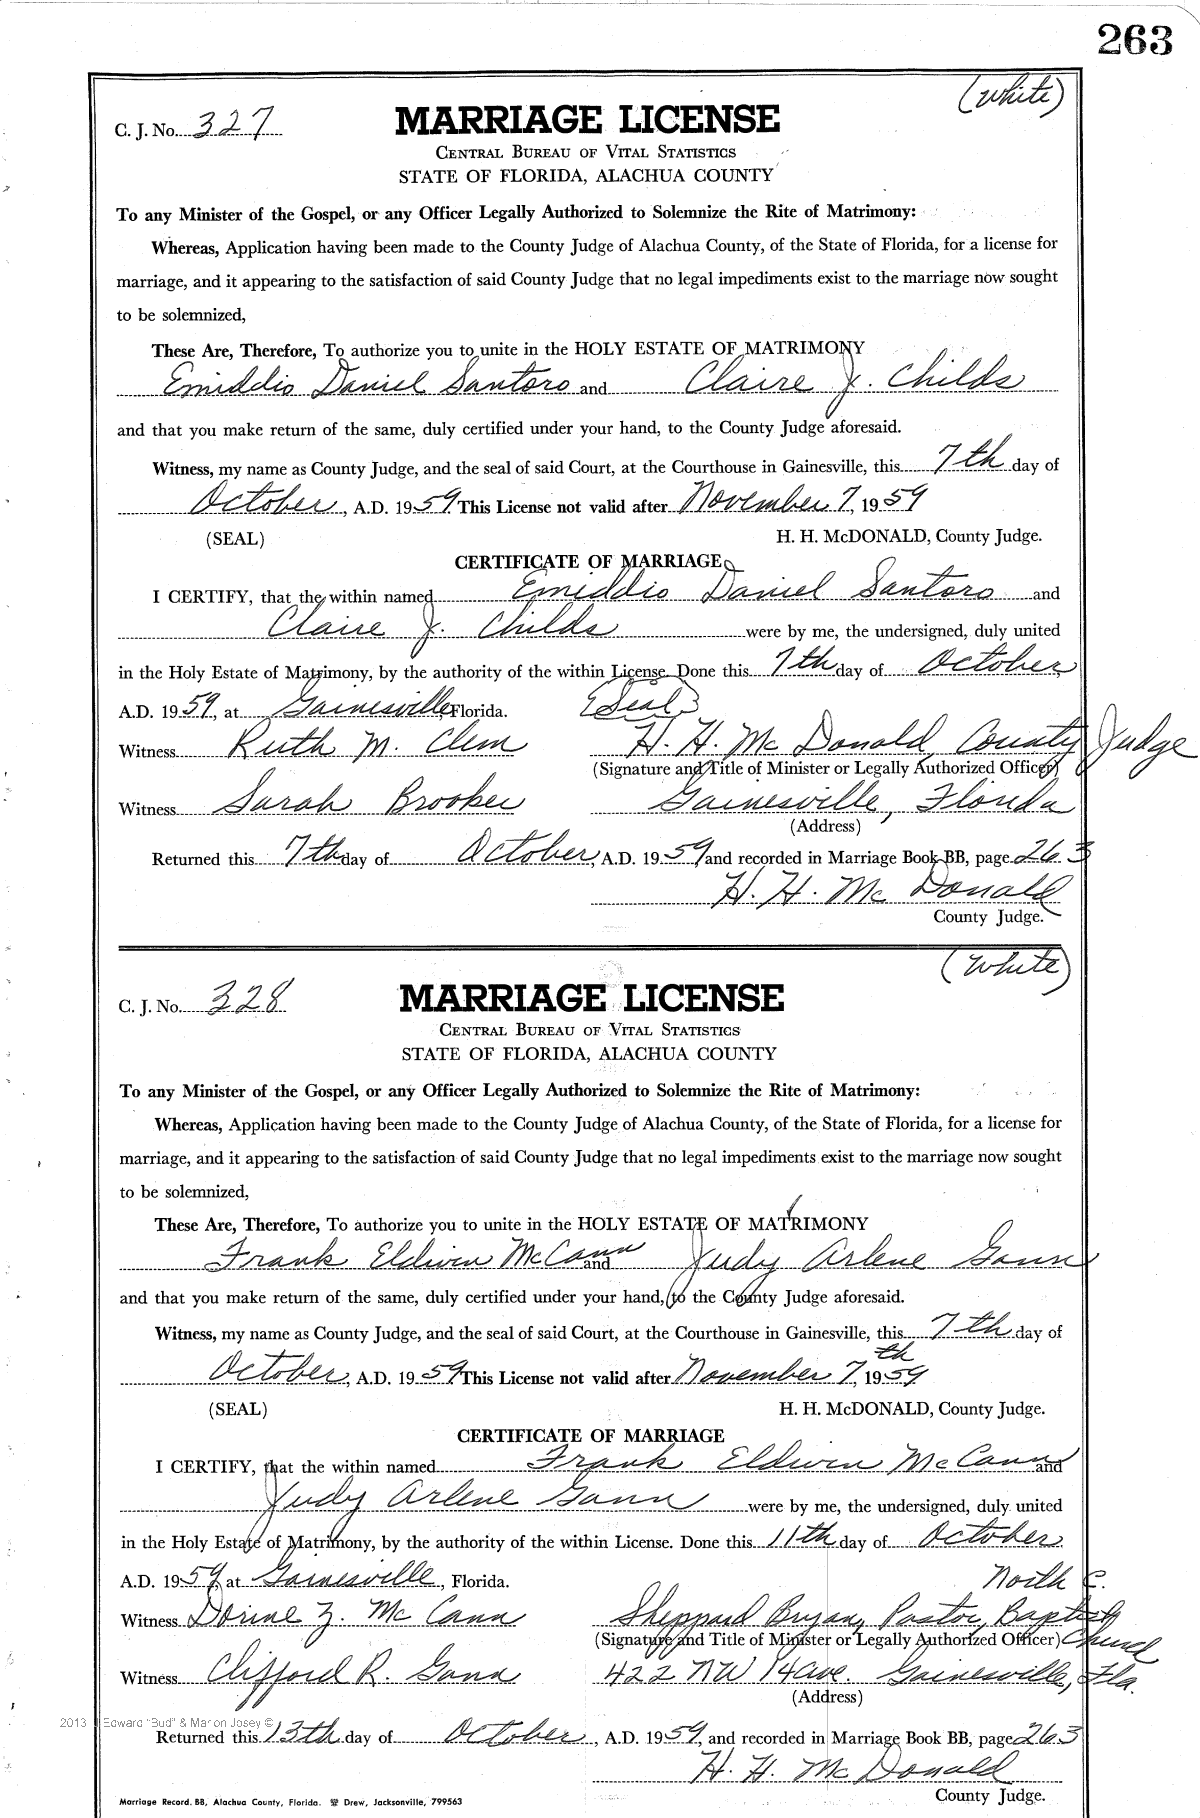 263
(White)
C. J. No. 327
MARRIAGE LICENSE
CENTRAL BUREAU OF VITAL STATISTICS
STATE OF FLORIDA, ALACHUA COUNTY
To any Minister of the Gospel, or any Officer Legally Authorized to Solemnize the Rite of Matrimony:
Whereas, Application having been made to the County Judge of Alachua County, of the State of Florida, for a license for
marriage, and it appearing to the satisfaction of said County Judge that no legal impediments exist to the marriage now sought
to be solemnized,
These Are, Therefore, To authorize you to unite in the HOLY ESTATE OF MATRIMONY
Emiddio Daniel Santoro and Claire J. Childs
and that you make return of the same, duly certified under your hand, to the County Judge aforesaid.
Witness, my name as County Judge, and the seal of said Court, at the Courthouse in Gainesville, this 7th day of
October, A.D. 1959 This License not valid after November 7, 1959
(SEAL) H. H. McDONALD, County Judge.
CERTIFICATE OF MARRIAGE
I CERTIFY, that the within named Emiddio Daniel Santoro and
Claire J. Childs were by me, the undersigned, duly united
in the Holy Estate of Matrimony, by the authority of the within License. Done this 7th day of October,
A.D. 1959, at Gainesville, Florida. (Seal)
Witness Ruth M. Clem H. H. McDonald, County Judge
(Signature and Title of Minister or Legally Authorized Officer)
Witness Sarah Brooker Gainesville, Florida
(Address)
Returned this 7th day of October, A.D. 1959, and recorded in Marriage Book BB, page 263
H. H. McDonald
County Judge.
(White)
C. J. No. 328
MARRIAGE LICENSE
CENTRAL BUREAU OF VITAL STATISTICS
STATE OF FLORIDA, ALACHUA COUNTY
To any Minister of the Gospel, or any Officer Legally Authorized to Solemnize the Rite of Matrimony:
Whereas, Application having been made to the County Judge of Alachua County, of the State of Florida, for a license for
marriage, and it appearing to the satisfaction of said County Judge that no legal impediments exist to the marriage now sought
to be solemnized,
These Are, Therefore, To authorize you to unite in the HOLY ESTATE OF MATRIMONY
Frank Eldwin McCann and Judy Arlene Gann
and that you make return of the same, duly certified under your hand, to the County Judge aforesaid.
Witness, my name as County Judge, and the seal of said Court, at the Courthouse in Gainesville, this 7th day of
October, A.D. 1959 This License not valid after November 7th, 1959
(SEAL) H. H. McDONALD, County Judge.
CERTIFICATE OF MARRIAGE
I CERTIFY, that the within named Frank Eldwin McCann and
Judy Arlene Gann were by me, the undersigned, duly united
in the Holy Estate of Matrimony, by the authority of the within License. Done this 11th day of October
A.D. 1959, at Gainesville, Florida. North C.
Witness Dorine Z. McCann Sheppard Bryan, Pastor, Baptist
(Signature and Title of Minister or Legally Authorized Officer) Church
Witness Clifford R. Gann 422 NW 14 ave. Gainesville, Fla.
(Address)
2013 Edward "Bud" & Marion Josey ©
Returned this 13th day of October, A.D. 1959, and recorded in Marriage Book BB, page 263
H. H. McDonald
County Judge.
Marriage Record. BB, Alachua County, Florida. Drew, Jacksonville, 799563